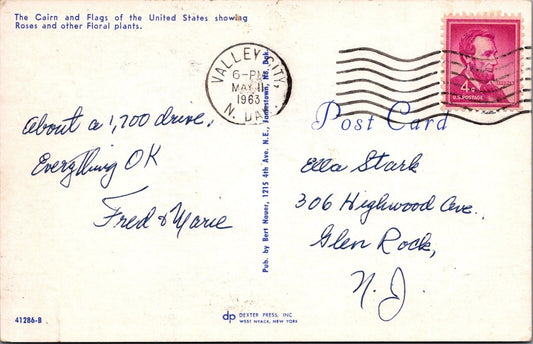 The Cairn and Flags of the United States showing
Roses and other Floral plants.
VALLEY CITY
6-PM
MAY 11
1963
N. DAK
4¢
U.S. POSTAGE
Post Card
About a 1,700 drive.
Everything OK
Fred & Marie
Pub. by Bert Nover, 1215 4th Ave. N.E., Jamestown, No. Dak.
Ella Stark
306 Highwood Ave.,
Glen Rock,
N.J.
41286-B
dp DEXTER PRESS, INC.
WEST NYACK, NEW YORK